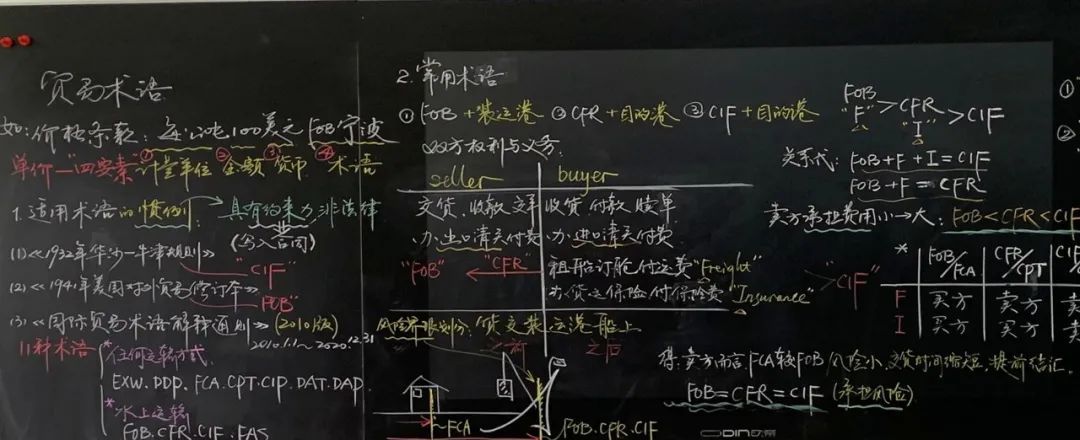 贸易术语
如:价格条款:每公吨100美元FOB宁波
单价—"四要素"①计量单位 ②金额 ③货币 ④术语
1.适用术语的惯例: 具有约束力非法律
(写入合同)
(1)《1932年华沙—牛津规则》 "CIF"
(2)《1941年美国对外贸易修订本》 "FOB"
(3)《国际贸易术语解释通则》(2010版)
2010.1.1~2020.12.31
11种术语
*任何运输方式:
EXW.DDP.FCA.CPT.CIP.DAT.DAP.
*水上运输
FOB.CFR.CIF.FAS
2.常用术语
①FOB+装运港 ②CFR+目的港 ③CIF+目的港
双方权利与义务:
seller buyer
交货、收款交单 收货、付款、赎单
办:出口清关付费 办:进口清关付费
"FOB" "CFR" 租船订舱付运费"Freight"
办货运保险付保险费"Insurance" >"CIF"
风险界限划分: 货交装运港船上
之前 之后
~FCA
FOB.CFR.CIF
FOB
"F" > CFR
"I" > CIF
关系式: FOB+F+I=CIF
FOB+F=CFR
卖方承担费用小→大: FOB<CFR<CIF
* FOB/FCA CFR/CPT CIF
F 买方 卖方 卖
I 买方 买方 卖
得:卖方而言,FCA较FOB风险小,交货时间缩短,提前结汇.
FOB=CFR=CIF (承担风险)
ODIN
①
②